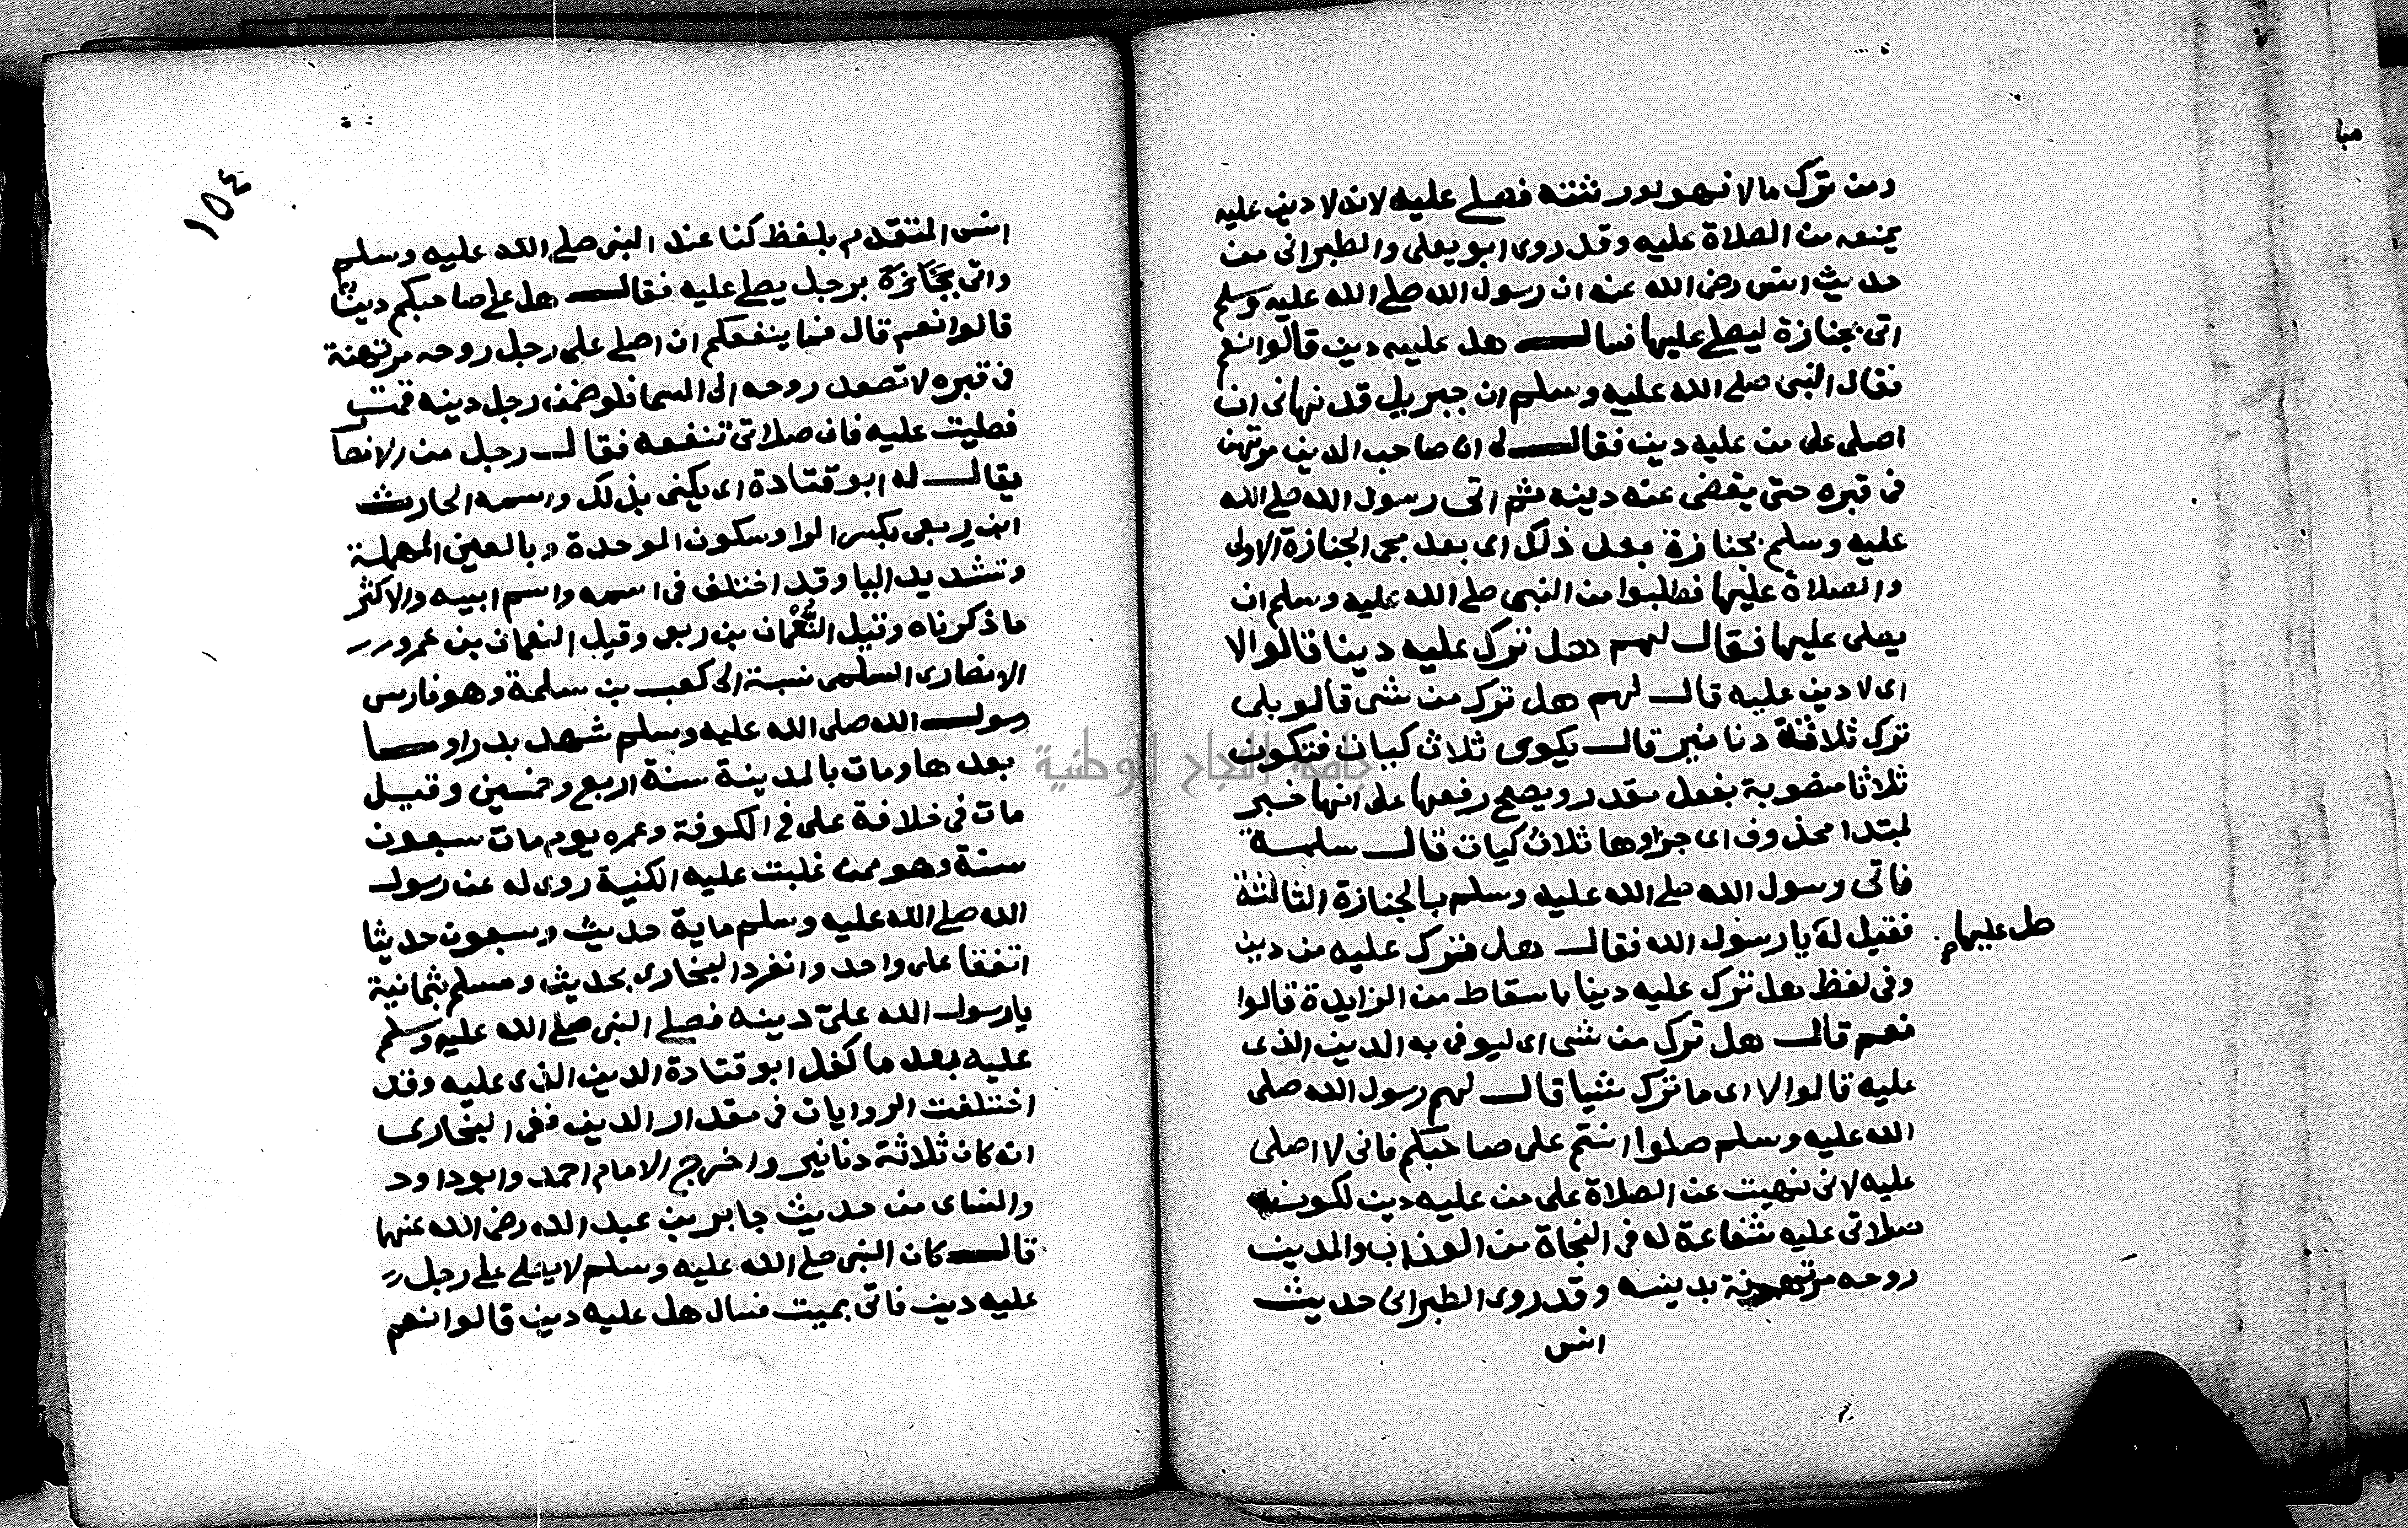 ومن ترك مالا فهو لورثته فصلى عليه لانه لا دين عليه
يمنعه من الصلاة عليه وقد روى ابو يعلى والطبرانى من
حديث انس رضى الله عنه ان رسول الله صلى الله عليه وسلم
اتى بجنازة ليصلى عليها فسال هل عليه دين قالوا نعم
فقال النبى صلى الله عليه وسلم ان جبريل قد نهانى ان
اصلى على من عليه دين فقال له ان صاحب الدين مرتهن
فى قبره حتى يقضى عنه دينه ثم اتى رسول الله صلى الله
عليه وسلم بجنازة بعد ذلك اى بعد مجى الجنازة الاولى
والصلاة عليها فطلبوا من النبى صلى الله عليه وسلم ان
يصلى عليها فقال لهم هل ترك عليه دينا قالوا لا
اى لا دين عليه قال لهم هل ترك من شى قالو بلى
ترك ثلاثة دنانير قال يكوى ثلاث كيات فتكون
ثلاثا منصوبة بفعل مقدر ويصح رفعها على انها خبر
لمبتدا محذوف اى جزاوها ثلاث كيات قال سلمة
فاتى رسول الله صلى الله عليه وسلم بالجنازة الثالثة
فقيل له يا رسول الله فقال هل فترك عليه من دين
صل عليها
وفى لفظ هل ترك عليه دينا باسقاط من الزايدة قالوا
نعم قال هل ترك من شى اى ليوفى به الدين الذى
عليه قالوا لا اى ما ترك شيا قال لهم رسول الله صلى
الله عليه وسلم صلوا انتم على صاحبكم فانى لا اصلى
عليه لانى نهيت عن الصلاة على من عليه دين لكون
صلاتى عليه شفاعة له فى النجاة من العذاب والمدين
روحه مرتهنة بدينه وقد روى الطبرانى حديث
انس
١٥٤
انس المتقدم بلفظ كنا عند النبى صلى الله عليه وسلم
واتى بجنازة برجل يصلى عليه فقال هل على صاحبكم دين
قالوا نعم قال فما ينفعكم ان اصلى على رجل روحه مرتهنة
فى قبره لا تصعد روحه الى السما فلو ضمن رجل دينه قمت
فصليت عليه فان صلاتى تنفعه فقال رجل من الانصا
يقال له ابو قتادة اى يكنى بذلك واسمه الحارث
ابن ربعى بكسر الرا وسكون الموحدة وبالعين المهملة
وتشديد اليا وقد اختلف فى اسمه واسم ابيه والاكثر
ما ذكرناه وقيل النعمان بن ربعى وقيل النعمان بن عمرو
الانصارى السلمى نسبة الى كعب بن سلمة وهو فارس
رسول الله صلى الله عليه وسلم شهد بدرا وما
بعدها ومات بالمدينة سنة اربع وخمسين وقيل
مات فى خلافة على فى الكوفة وعمره يوم مات سبعون
سنة وهو ممن غلبت عليه الكنية روى له عن رسول
الله صلى الله عليه وسلم ماية حديث وسبعون حديثا
اتفقا على واحد وانفرد البخارى بحديث ومسلم بثمانية
يا رسول الله علىّ دينه فصلى النبى صلى الله عليه وسلم
عليه بعد ما كفل ابو قتادة الدين الذى عليه وقد
اختلفت الروايات فى مقدار الدين ففى البخارى
انه كان ثلاثة دنانير واخرج الامام احمد وابو داود
والنساى من حديث جابر بن عبد الله رضى الله عنهما
قال كان النبى صلى الله عليه وسلم لا يصلى على رجل
عليه دين فاتى بميت فسال هل عليه دين قالوا نعم
جامعة النجاح الوطنية